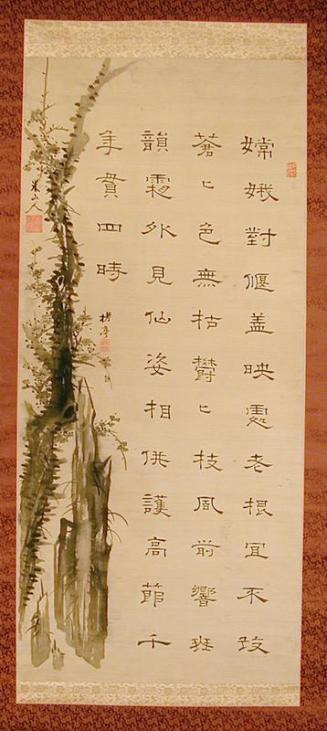 嫦娥對偃盖映憲老根宜不改
蒼〻色無枯欝〻枝風前響班
韻霧外見仙姿相倂護高節千
年貫四時
樗亭
米山人